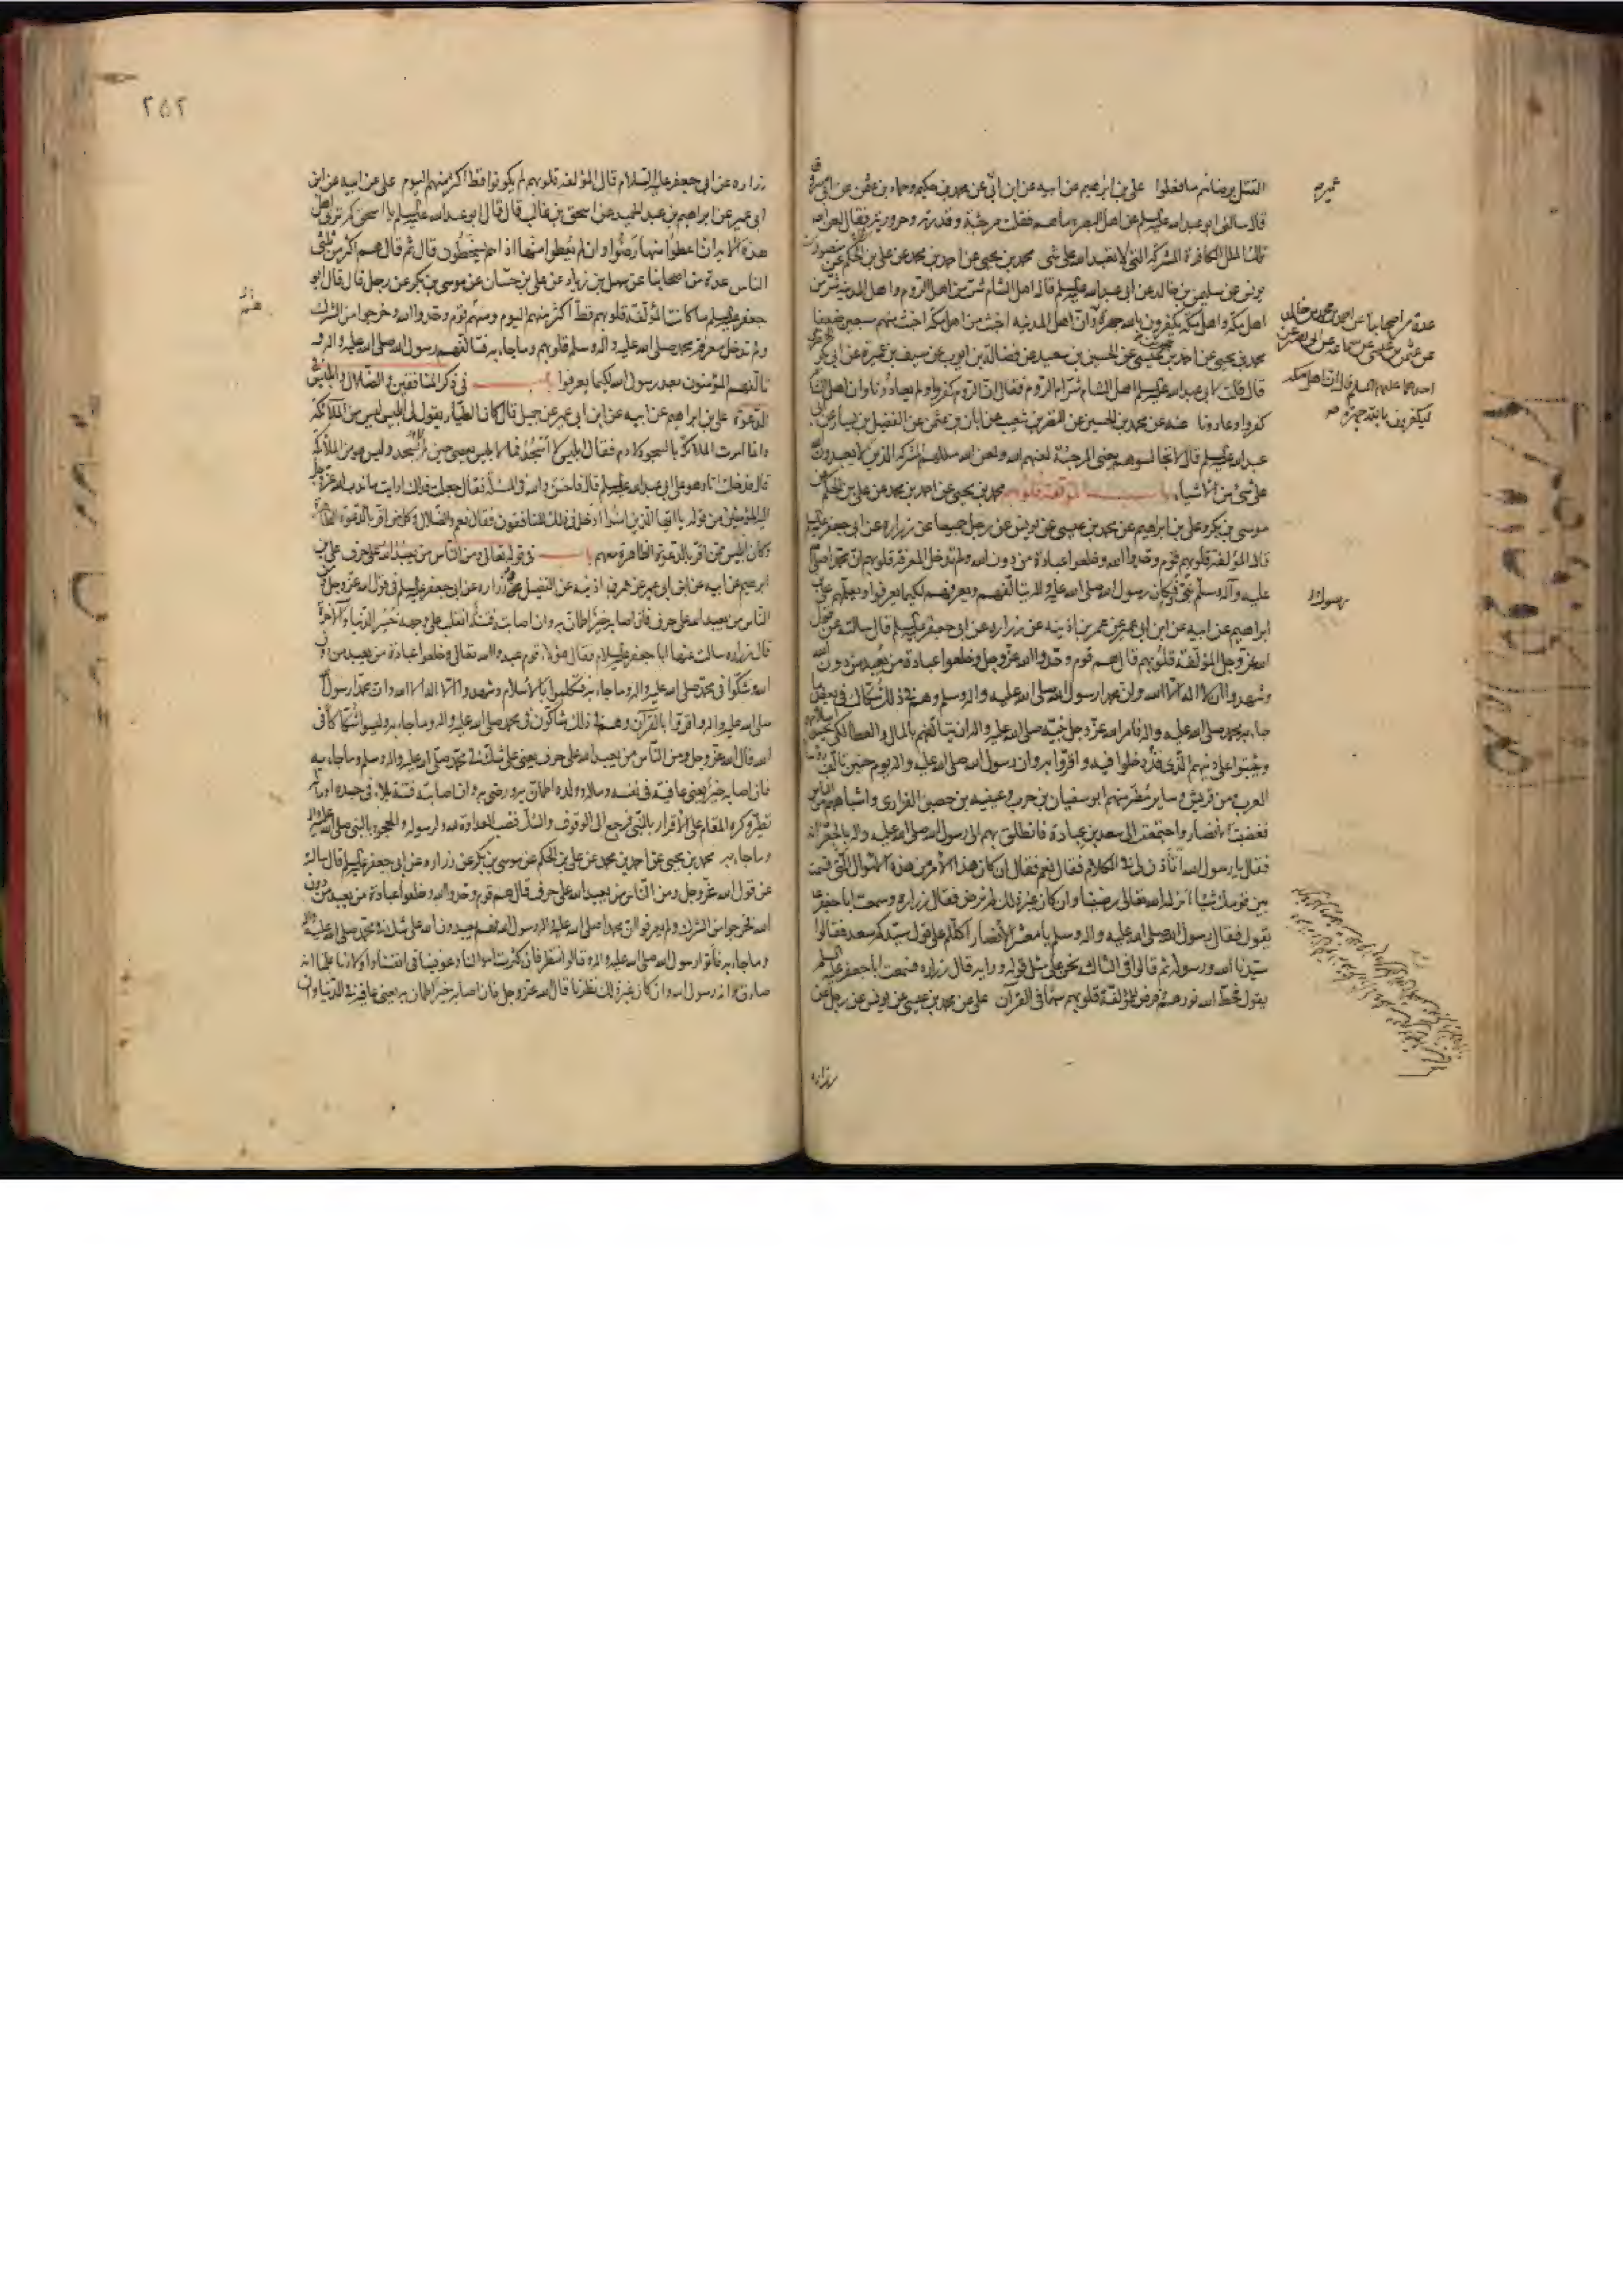 القتل برضاهم ما فعلوا علي بن ابرهيم عن ابيه عن ابن ابي عن محمد بن حكيم وحماد بن عثمن عن ابي مسروق
قال سالني ابو عبد الله عليه السلم عن اهل البصرة ما هم فقلت مرجئة وقدرية وحرورية فقال لعن الله
تلك الملل الكافرة المشركة التي لا تعبد الله على شئ محمد بن يحيى عن احمد بن محمد عن علي بن الحكم عن منصور بن
يونس عن سليمن بن خالد عن ابي عبد الله عليه السلم قال اهل الشام شر من اهل الروم واهل المدينة شر من
اهل مكة واهل مكة يكفرون بالله جهرة وان اهل المدينة اخبث من اهل مكة اخبث منهم سبعين ضعفا
محمد بن يحيى عن احمد بن محمد بن عيسى عن الحسين بن سعيد عن فضالة بن ايوب عن سيف بن عميرة عن ابي بكر
قال قلت لابي عبد الله عليه السلم اهل الشام شر ام الروم فقال ان الروم كفروا ولم يعادونا وان اهل الشام
كفروا وعادونا عنه عن محمد بن الحسين عن النضر بن شعيب عن ابان بن عثمن عن الفضيل بن يسار عن ابي
عبد الله عليه السلم قال لا تجالسوهم يعني المرجئة لعنهم الله ولعن الله مللهم المشركة الذين لا يعبدون الله
على شئ من الاشياء باب المؤلفة قلوبهم محمد بن يحيى عن احمد بن محمد عن علي بن الحكم عن
موسى بن بكر وعلي بن ابراهيم عن محمد بن عيسى عن يونس عن رجل جميعا عن زراره عن ابي جعفر عليه السلم
قال المؤلفة قلوبهم قوم وحدوا الله وخلعوا عبادة من دون الله ولم تدخل المعرفة قلوبهم ان محمدا صلى الله
عليه وآله وسلم نبي فكان رسول الله صلى الله عليه وآله يتألفهم ويعرفهم لكيما يعرفوا ويعلمهم علي بن
ابراهيم عن ابيه عن ابن ابي عمير عن عمر بن اذينه عن زراره عن ابي جعفر عليه السلم قال سالته عن قول
الله عز وجل المؤلفة قلوبهم قال هم قوم وحدوا الله عز وجل وخلعوا عبادة من يعبد من دون الله
وشهدوا ان لا اله الا الله وان محمدا رسول الله صلى الله عليه واله وسلم وهم في ذلك شكاك في بعض ما
جاء به محمد صلى الله عليه واله فامر الله عز وجل نبيه صلى الله عليه واله ان يتالفهم بالمال والعطا لكي يحسن اسلامهم
ويثبتوا على دينهم الذي قد دخلوا فيه واقروا به وان رسول الله صلى الله عليه واله يوم حنين تالف رؤسا
العرب من قريش وساير مضر منهم ابو سفيان بن حرب وعيينه بن حصين الفزاري واشباههم من الناس
فغضبت الانصار واجتمعت الى سعد بن عبادة فانطلق بهم الى رسول الله صلى الله عليه واله بالجعرانه
فقال يا رسول الله اتاذن لي في الكلام فقال نعم فقال ان كان هذا الامر من هذه الاموال التي قسمت
بين قومك شيئا انزله الله تعالى رضينا وان كان غير ذلك لم نرض فقال زراره وسمعت ابا جعفر ع
يقول فقال رسول الله صلى الله عليه واله وسلم يا معشر الانصار اكلكم على قول سيدكم سعد فقالوا
سيدنا الله ورسوله ثم قالوا في الثالثه نحن على مثل قوله ورايه قال زراره فسمعت ابا جعفر عليه السلم
يقول فحط الله نورهم وفرض للمؤلفة قلوبهم سهما في القرآن علي عن محمد بن عيسى عن يونس عن رجل عن
زراره
عدة من اصحابنا عن احمد بن محمد بن خالد
عن عثمن بن عيسى عن سماعة عن ابي بصير عن
احدهما عليهما السلم قال ان اهل مكة
ليكفرون بالله جهرة
رسول الله
٢٥٢
زراره عن ابي جعفر عليه السلام قال المؤلفة قلوبهم لم يكونوا قط اكثر منهم اليوم علي عن ابيه عن ابن
ابي عمير عن ابراهيم بن عبد الحميد عن اسحق بن غالب قال قال ابو عبد الله عليه السلم يا اسحق كم ترى اهل
هذه الاية ان اعطوا منها رضوا وان لم يعطوا منها اذا هم يسخطون قال ثم قال هم اكثر من ثلثي
الناس عدة من اصحابنا عن سهل بن زياد عن علي بن حسان عن موسى بن بكر عن رجل قال قال ابو
جعفر عليه السلم ما كانت المؤلفة قلوبهم قط اكثر منهم اليوم ومنهم قوم وحدوا الله وخرجوا من الشرك
ولم تدخل معرفة محمد صلى الله عليه واله وسلم قلوبهم وما جاء به فتالفهم رسول الله صلى الله عليه واله و
تالفهم المؤمنون بعد رسول الله لكيما يعرفوا باب في ذكر المنافقين والضلال وابليس في
الدعوة علي بن ابراهيم عن ابيه عن ابن ابي عمير عن جميل قال كان الطيار يقول لي ابليس ليس من الملائكة
وانما امرت الملائكة بالسجود لادم فقال ابليس لا اسجد فما لابليس يعصي حين لم يسجد وليس هو من الملائكة
قال فدخلت انا وهو على ابي عبد الله عليه السلم قال فاحسن والله في المسئلة فقال جعلت فداك ارايت ما ندب الله عز وجل
اليه المؤمنين من قوله يا ايها الذين امنوا ادخل في ذلك المنافقون فقال نعم والضلال وكل من اقر بالدعوة الظاهرة
وكان ابليس ممن اقر بالدعوة الظاهرة معهم باب في قوله تعالى ومن الناس من يعبد الله على حرف علي بن
ابرهيم عن ابيه عن ابن ابي عمير عن عمر بن اذينه عن الفضيل وزراره عن ابي جعفر عليه السلم في قول الله عز وجل ومن
الناس من يعبد الله على حرف فان اصابه خير اطمان به وان اصابته فتنة انقلب على وجهه خسر الدنيا والآخرة
قال زراره سالت عنها ابا جعفر عليه السلام فقال هؤلاء قوم عبدوا الله تعالى وخلعوا عبادة من يعبد من دون
الله وشكوا في محمد صلى الله عليه واله وما جاء به فتكلموا بالاسلام وشهدوا ان لا اله الا الله وان محمدا رسول الله
صلى الله عليه واله واقروا بالقرآن وهم في ذلك شاكون في محمد صلى الله عليه واله وما جاء به وليسوا شكاكا في
الله قال الله عز وجل ومن الناس من يعبد الله على حرف يعني على شك في محمد صلى الله عليه واله وسلم وما جاء به
فان اصابه خير يعني عافية في نفسه وماله وولده اطمان به ورضي به وان اصابته فتنة بلاء في جسده او ماله
تطير وكره المقام على الاقرار بالنبي فرجع الى الوقوف والشك فنصب العداوة لله ولرسوله والجحود بالنبي صلى الله عليه واله
وما جاء به محمد بن يحيى عن احمد بن محمد عن علي بن الحكم عن موسى بن بكر عن زراره عن ابي جعفر عليه السلم قال سالته
عن قول الله عز وجل ومن الناس من يعبد الله على حرف قال هم قوم وحدوا الله وخلعوا عبادة من يعبد من دون
الله فخرجوا من الشرك ولم يعرفوا ان محمدا صلى الله عليه واله رسول الله فهم يعبدون الله على شك في محمد صلى الله عليه واله
وما جاء به فاتوا رسول الله صلى الله عليه واله قالوا ننظر فان كثرت اموالنا وعوفينا في انفسنا واولادنا علمنا انه
صادق وانه رسول الله وان كان غير ذلك نظرنا قال الله عز وجل فان اصابه خير اطمان به يعني عافية في الدنيا وان